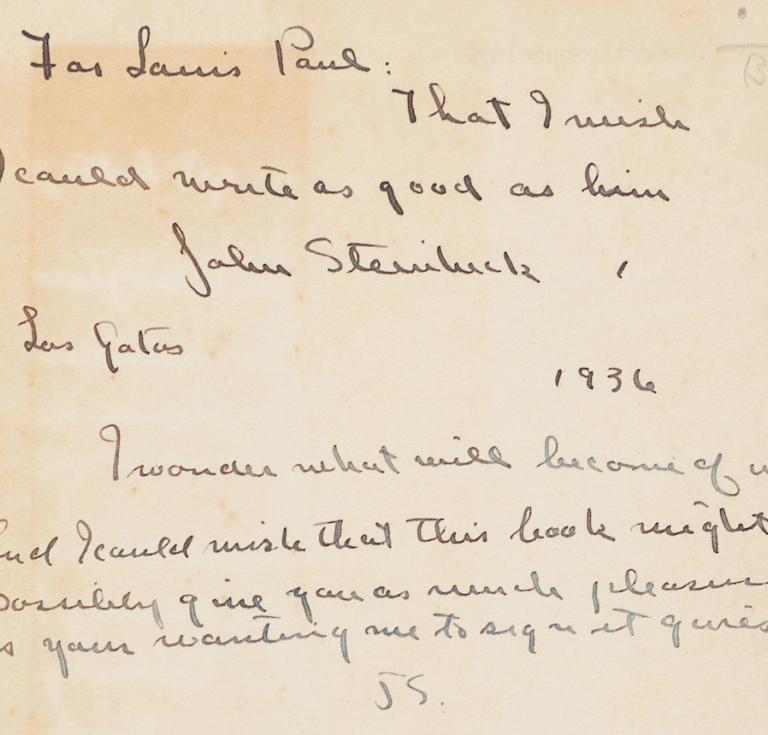 For Louis Paul:
That I wish
I could write as good as him
John Steinbeck
Los Gatos
1936
I wonder what will become of
And I could wish that this book might
possibly give you as much pleasure
as your wanting me to sign it gives
JS.